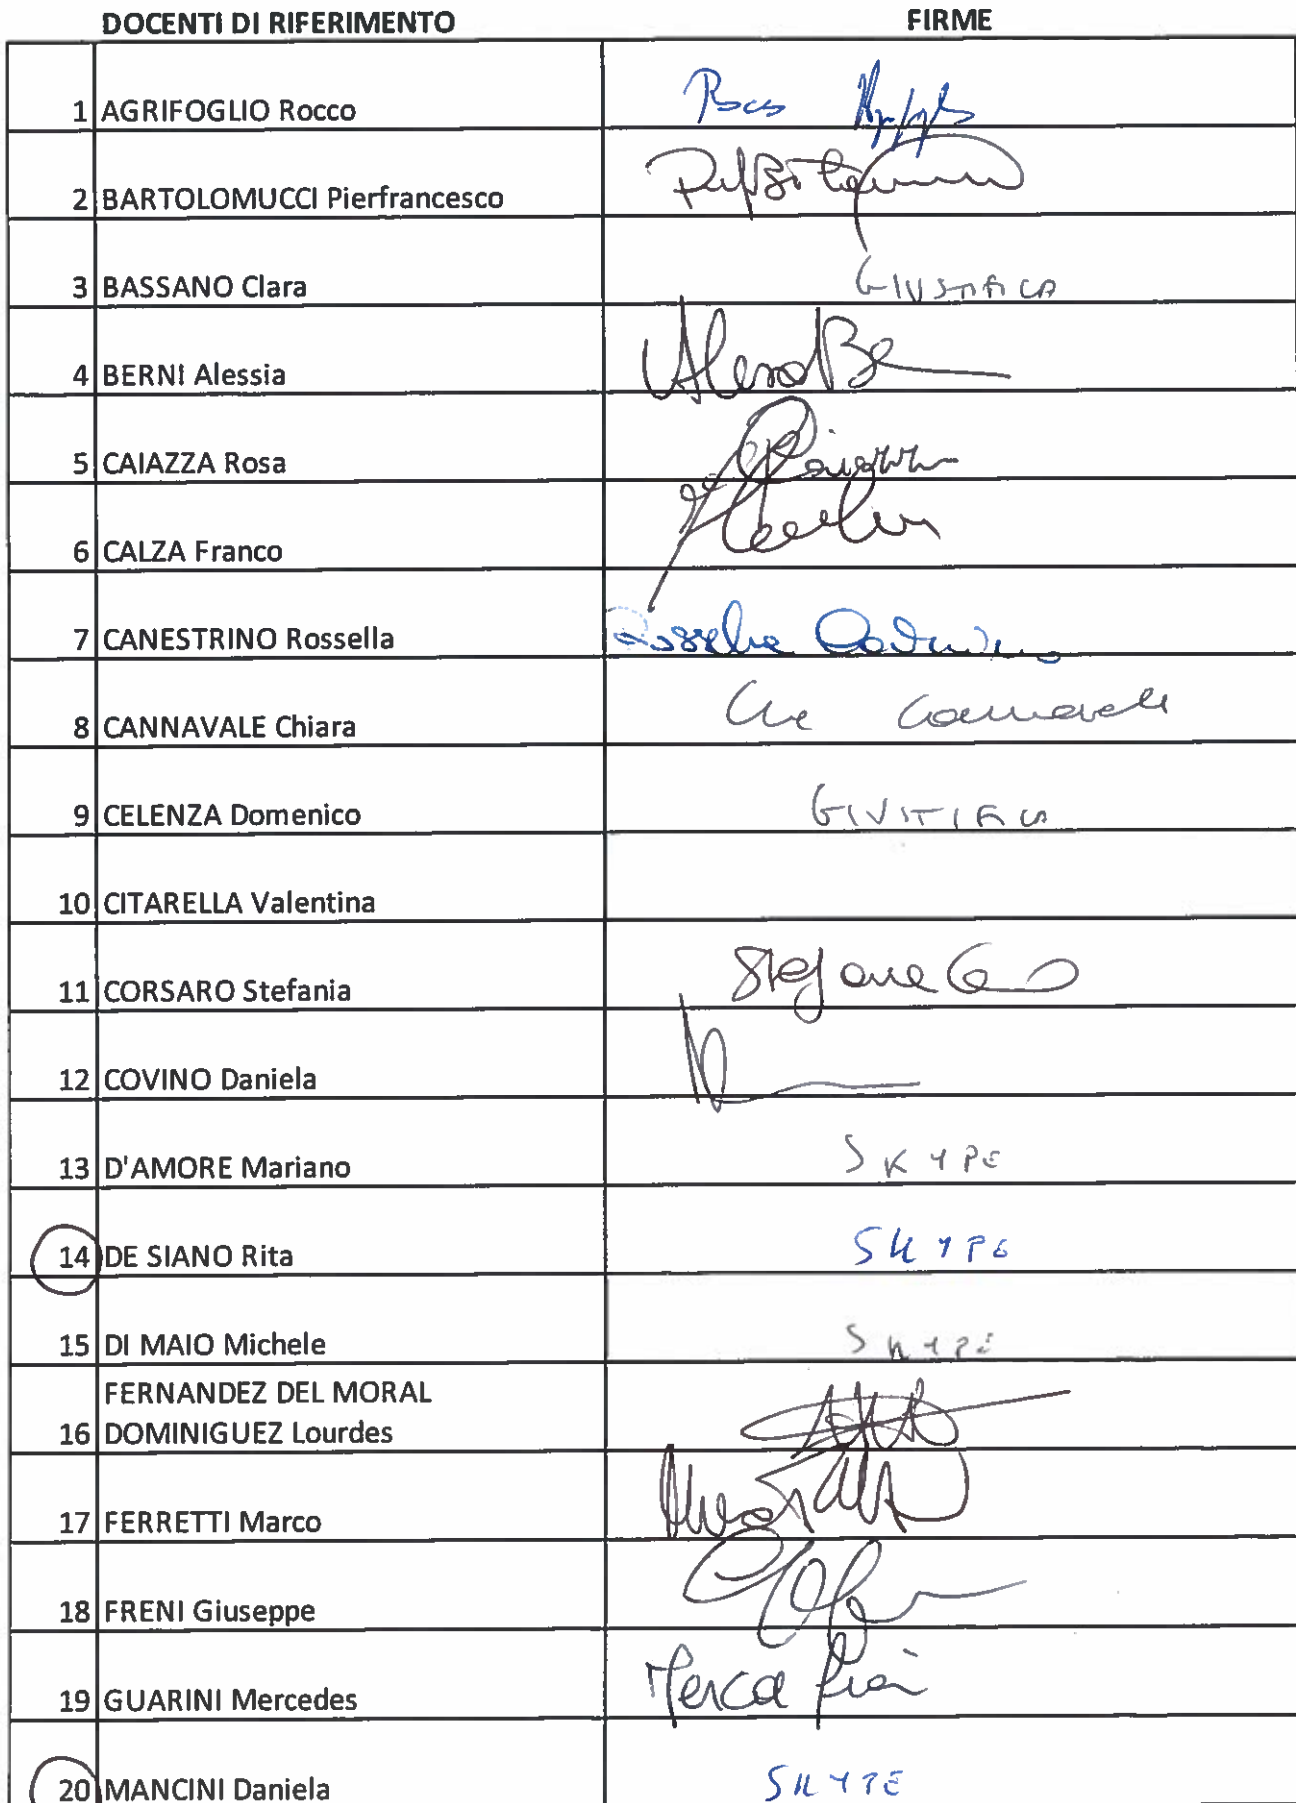 DOCENTI DI RIFERIMENTO FIRME
1 AGRIFOGLIO Rocco
2 BARTOLOMUCCI Pierfrancesco
3 BASSANO Clara GIUSTIFICA
4 BERNI Alessia
5 CAIAZZA Rosa
6 CALZA Franco
7 CANESTRINO Rossella Rossella
8 CANNAVALE Chiara Cannavale
9 CELENZA Domenico GIUSTIFICA
10 CITARELLA Valentina
11 CORSARO Stefania Stefania
12 COVINO Daniela
13 D'AMORE Mariano SKYPE
14 DE SIANO Rita SKYPE
15 DI MAIO Michele SKYPE
FERNANDEZ DEL MORAL
16 DOMINIGUEZ Lourdes
17 FERRETTI Marco
18 FRENI Giuseppe
19 GUARINI Mercedes
20 MANCINI Daniela SKYPE